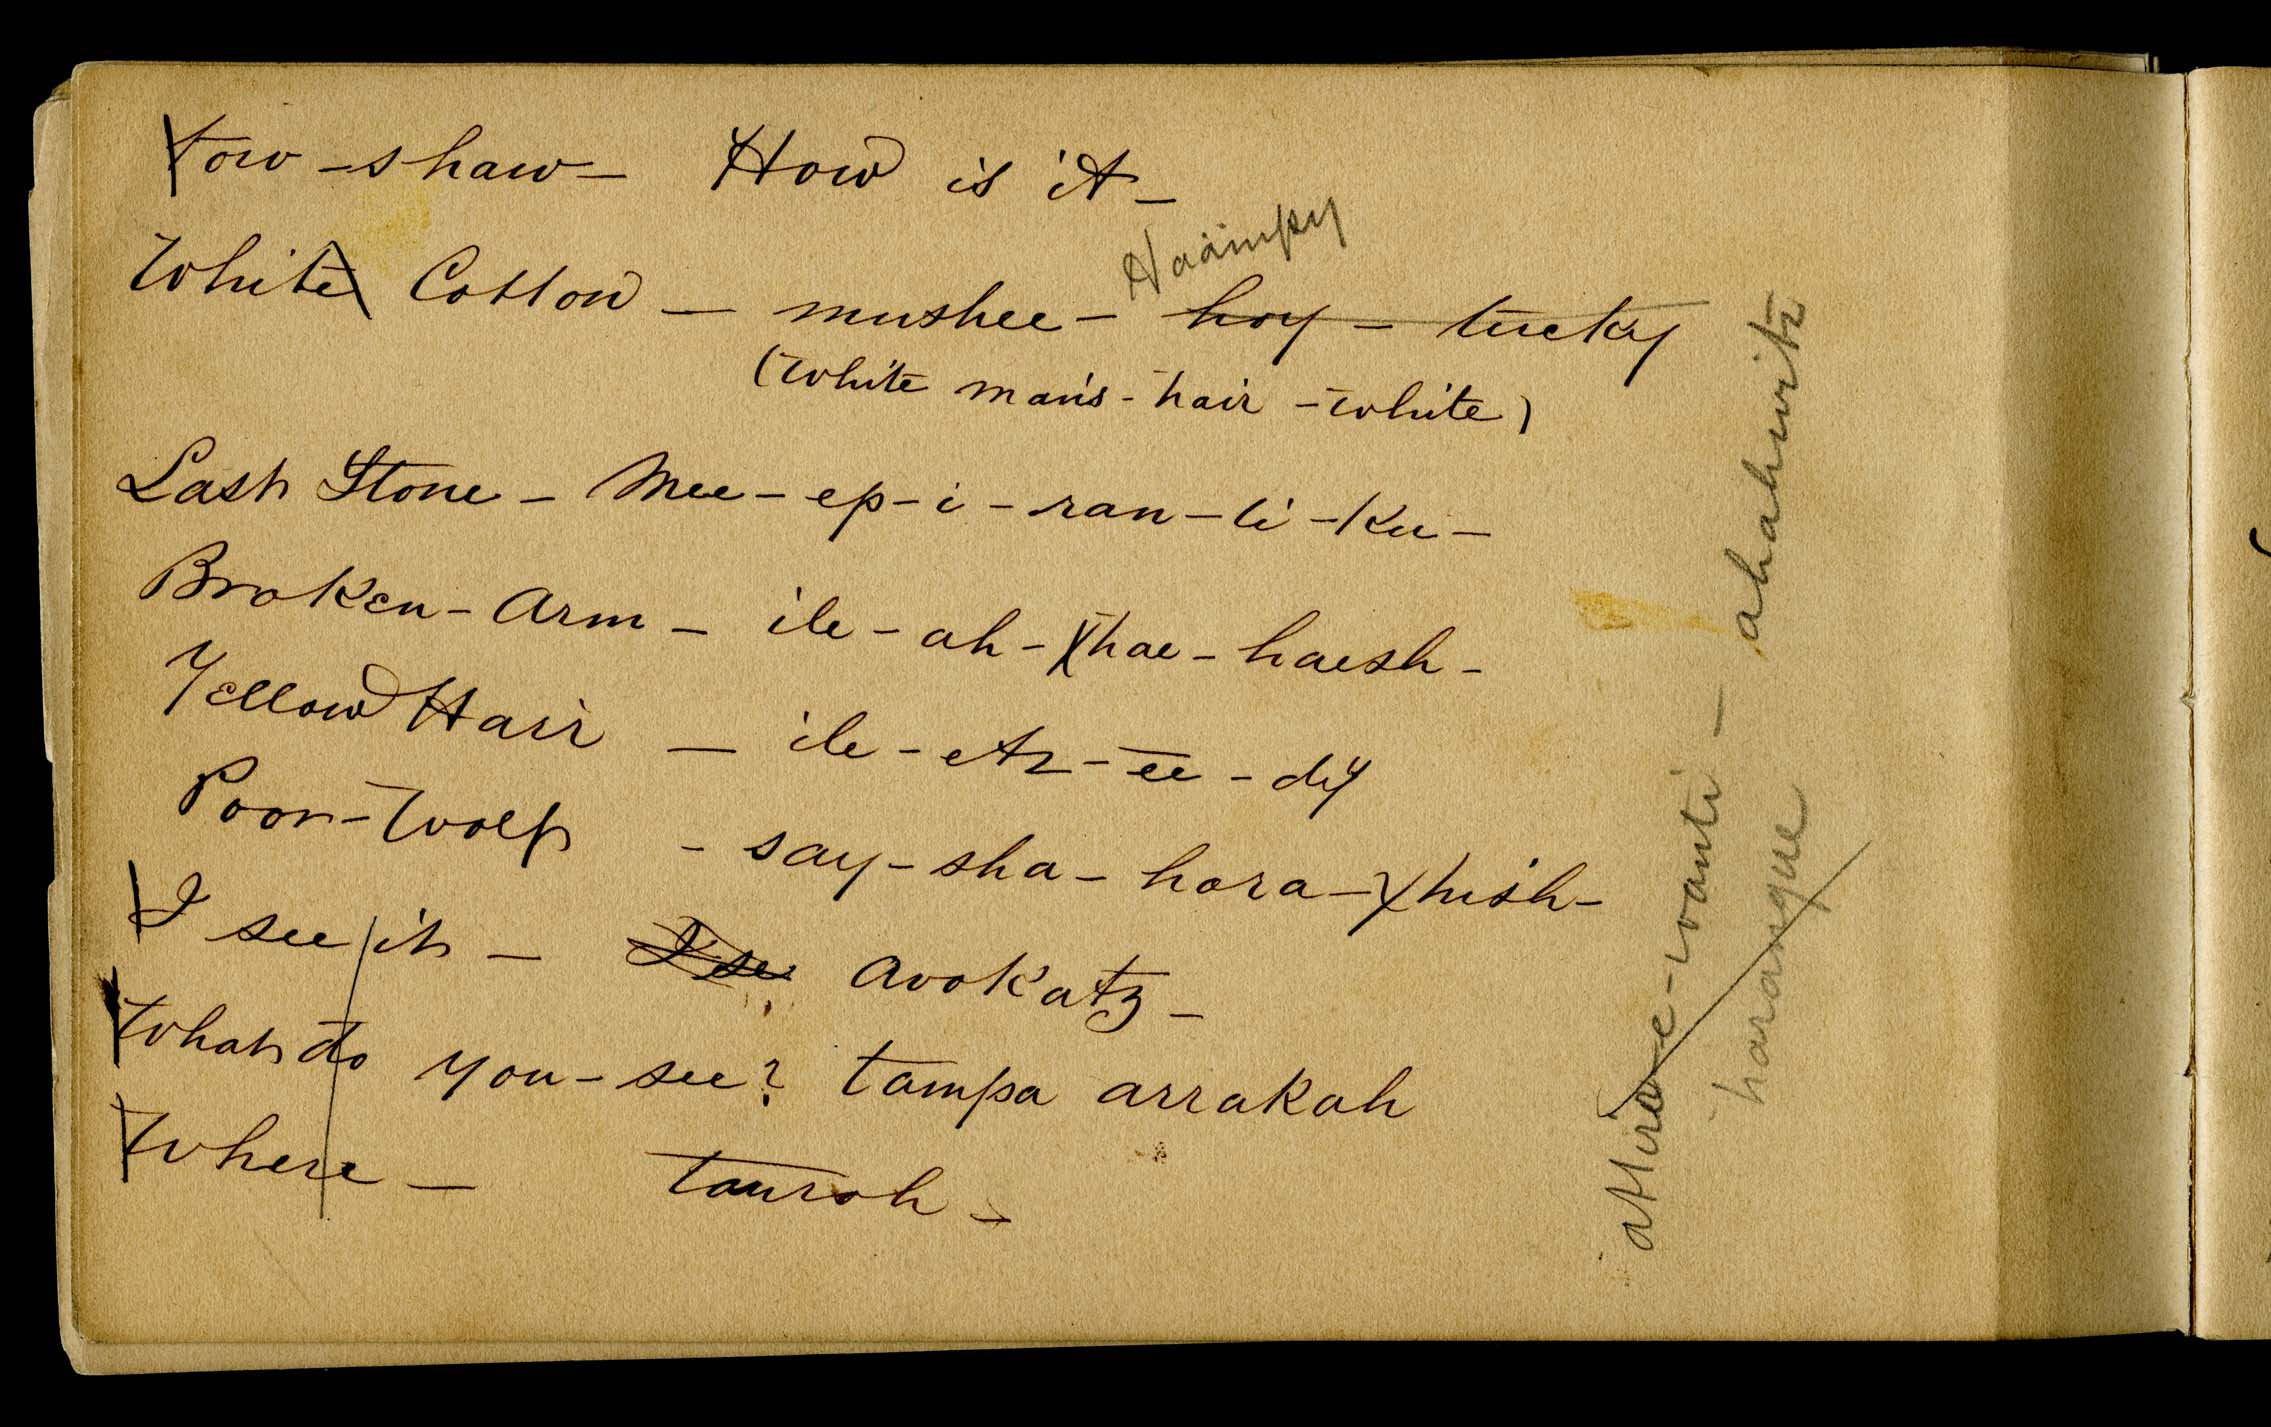 tow-shaw- How is it-
Haampy
White Cotton - mushee - hoy - tucky
(White man's - hair - white)
Last Stone - Mee - ep - i - ran - ti - Ku -
Broken - Arm - ile - ah - hae - haesh -
Yellow Hair - ile - etz - ee - dy
Poor - Wolf - say - sha - hora - hish -
I see it - I se avokatz -
What do you - see? tampa arrakah
Where - tauroh -
wanti - ahahwitz
harangue